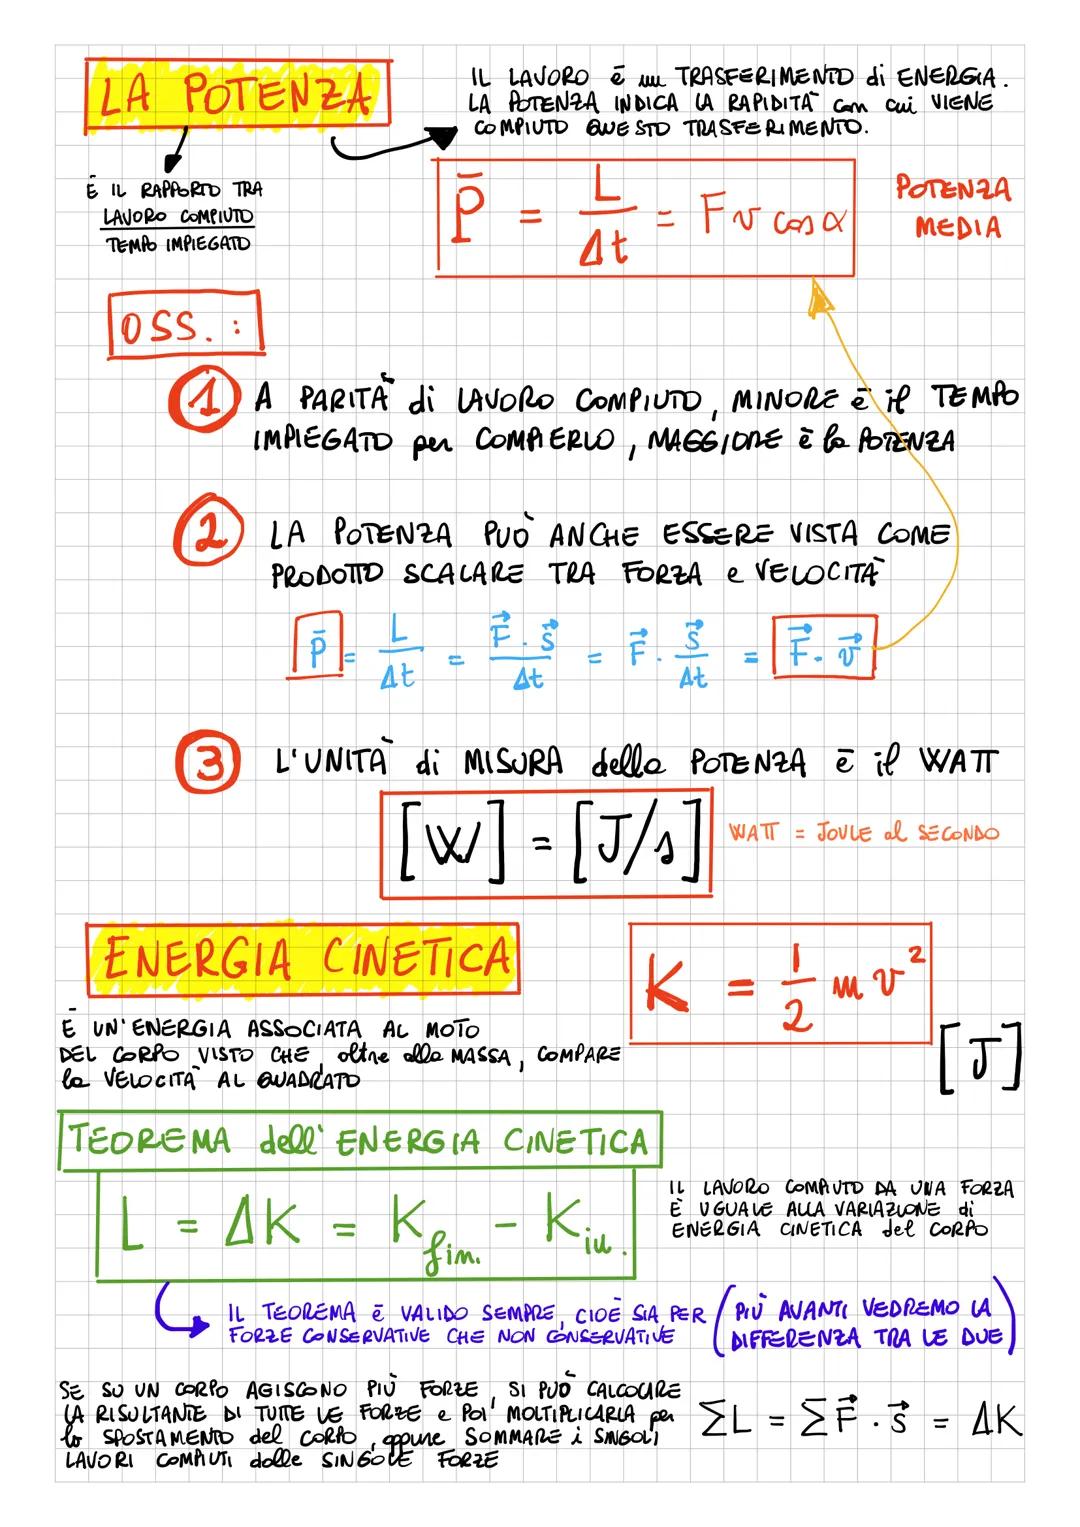 LA POTENZA
IL LAVORO è un TRASFERIMENTO di ENERGIA.
LA POTENZA INDICA LA RAPIDITÀ con cui VIENE
COMPIUTO QUESTO TRASFERIMENTO.
È IL RAPPORTO TRA
LAVORO COMPIUTO
TEMPO IMPIEGATO
P̄ = L/Δt = F v cos α
POTENZA
MEDIA
OSS. :
1 A PARITÀ di LAVORO COMPIUTO, MINORE è il TEMPO
IMPIEGATO per COMPIERLO, MAGGIORE è la POTENZA
2 LA POTENZA PUÒ ANCHE ESSERE VISTA COME
PRODOTTO SCALARE TRA FORZA e VELOCITÀ
P̄ = L/Δt = F⃗ . s⃗/Δt = F⃗ . s⃗/Δt = F⃗ . v⃗
3 L'UNITÀ di MISURA della POTENZA è il WATT
[W] = [J/s]
WATT = JOULE al SECONDO
ENERGIA CINETICA
K = 1/2 m v²
[J]
È UN'ENERGIA ASSOCIATA AL MOTO
DEL CORPO VISTO CHE, oltre alla MASSA, COMPARE
la VELOCITÀ AL QUADRATO
TEOREMA dell'ENERGIA CINETICA
L = ΔK = Kfin. - Kin.
IL LAVORO COMPIUTO DA UNA FORZA
È UGUALE ALLA VARIAZIONE di
ENERGIA CINETICA del CORPO
IL TEOREMA è VALIDO SEMPRE, CIOÈ SIA PER
FORZE CONSERVATIVE CHE NON CONSERVATIVE
(PIÙ AVANTI VEDREMO LA
DIFFERENZA TRA LE DUE)
SE SU UN CORPO AGISCONO PIÙ FORZE, SI PUÒ CALCOLARE
LA RISULTANTE DI TUTTE LE FORZE e POI MOLTIPLICARLA per
lo SPOSTAMENTO del CORPO, oppure SOMMARE i SINGOLI
LAVORI COMPIUTI dalle SINGOLE FORZE
ΣL = ΣF⃗ . s⃗ = ΔK